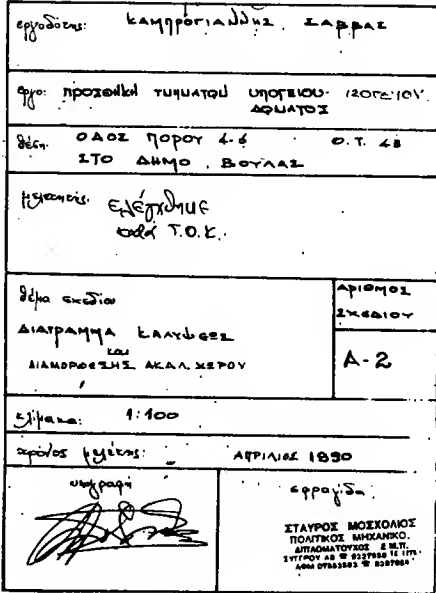 εργοδότης: ΚΑΜΠΡΟΓΙΑΝΝΗΣ ΣΑΒΒΑΣ
έργο: ΠΡΟΣΘΗΚΗ ΤΜΗΜΑΤΩΝ ΥΠΟΓΕΙΟΥ - ΙΣΟΓΕΙΟΥ
ΔΩΜΑΤΟΣ
θέση: ΟΔΟΣ ΠΟΡΟΥ 4-6 Ο.Τ. 48
ΣΤΟ ΔΗΜΟ ΒΟΥΛΑΣ
μελετητής: ελέγχθηκε
κατά Τ.Ο.Κ.
θέμα σχεδίου
ΑΡΙΘΜΟΣ
ΣΧΕΔΙΟΥ
ΔΙΑΓΡΑΜΜΑ ΚΑΛΥΨΕΩΣ
και
ΔΙΑΜΟΡΦΩΣΗΣ ΑΚΑΛ. ΧΩΡΟΥ
Α-2
κλίμακα: 1:100
χρόνος μελέτης: ΑΠΡΙΛΙΟΣ 1990
υπογραφή
σφραγίδα
ΣΤΑΥΡΟΣ ΜΟΣΧΟΛΙΟΣ
ΠΟΛΙΤΙΚΟΣ ΜΗΧΑΝΙΚΟ.
ΔΙΠΛΩΜΑΤΟΥΧΟΣ Ε.Μ.Π.